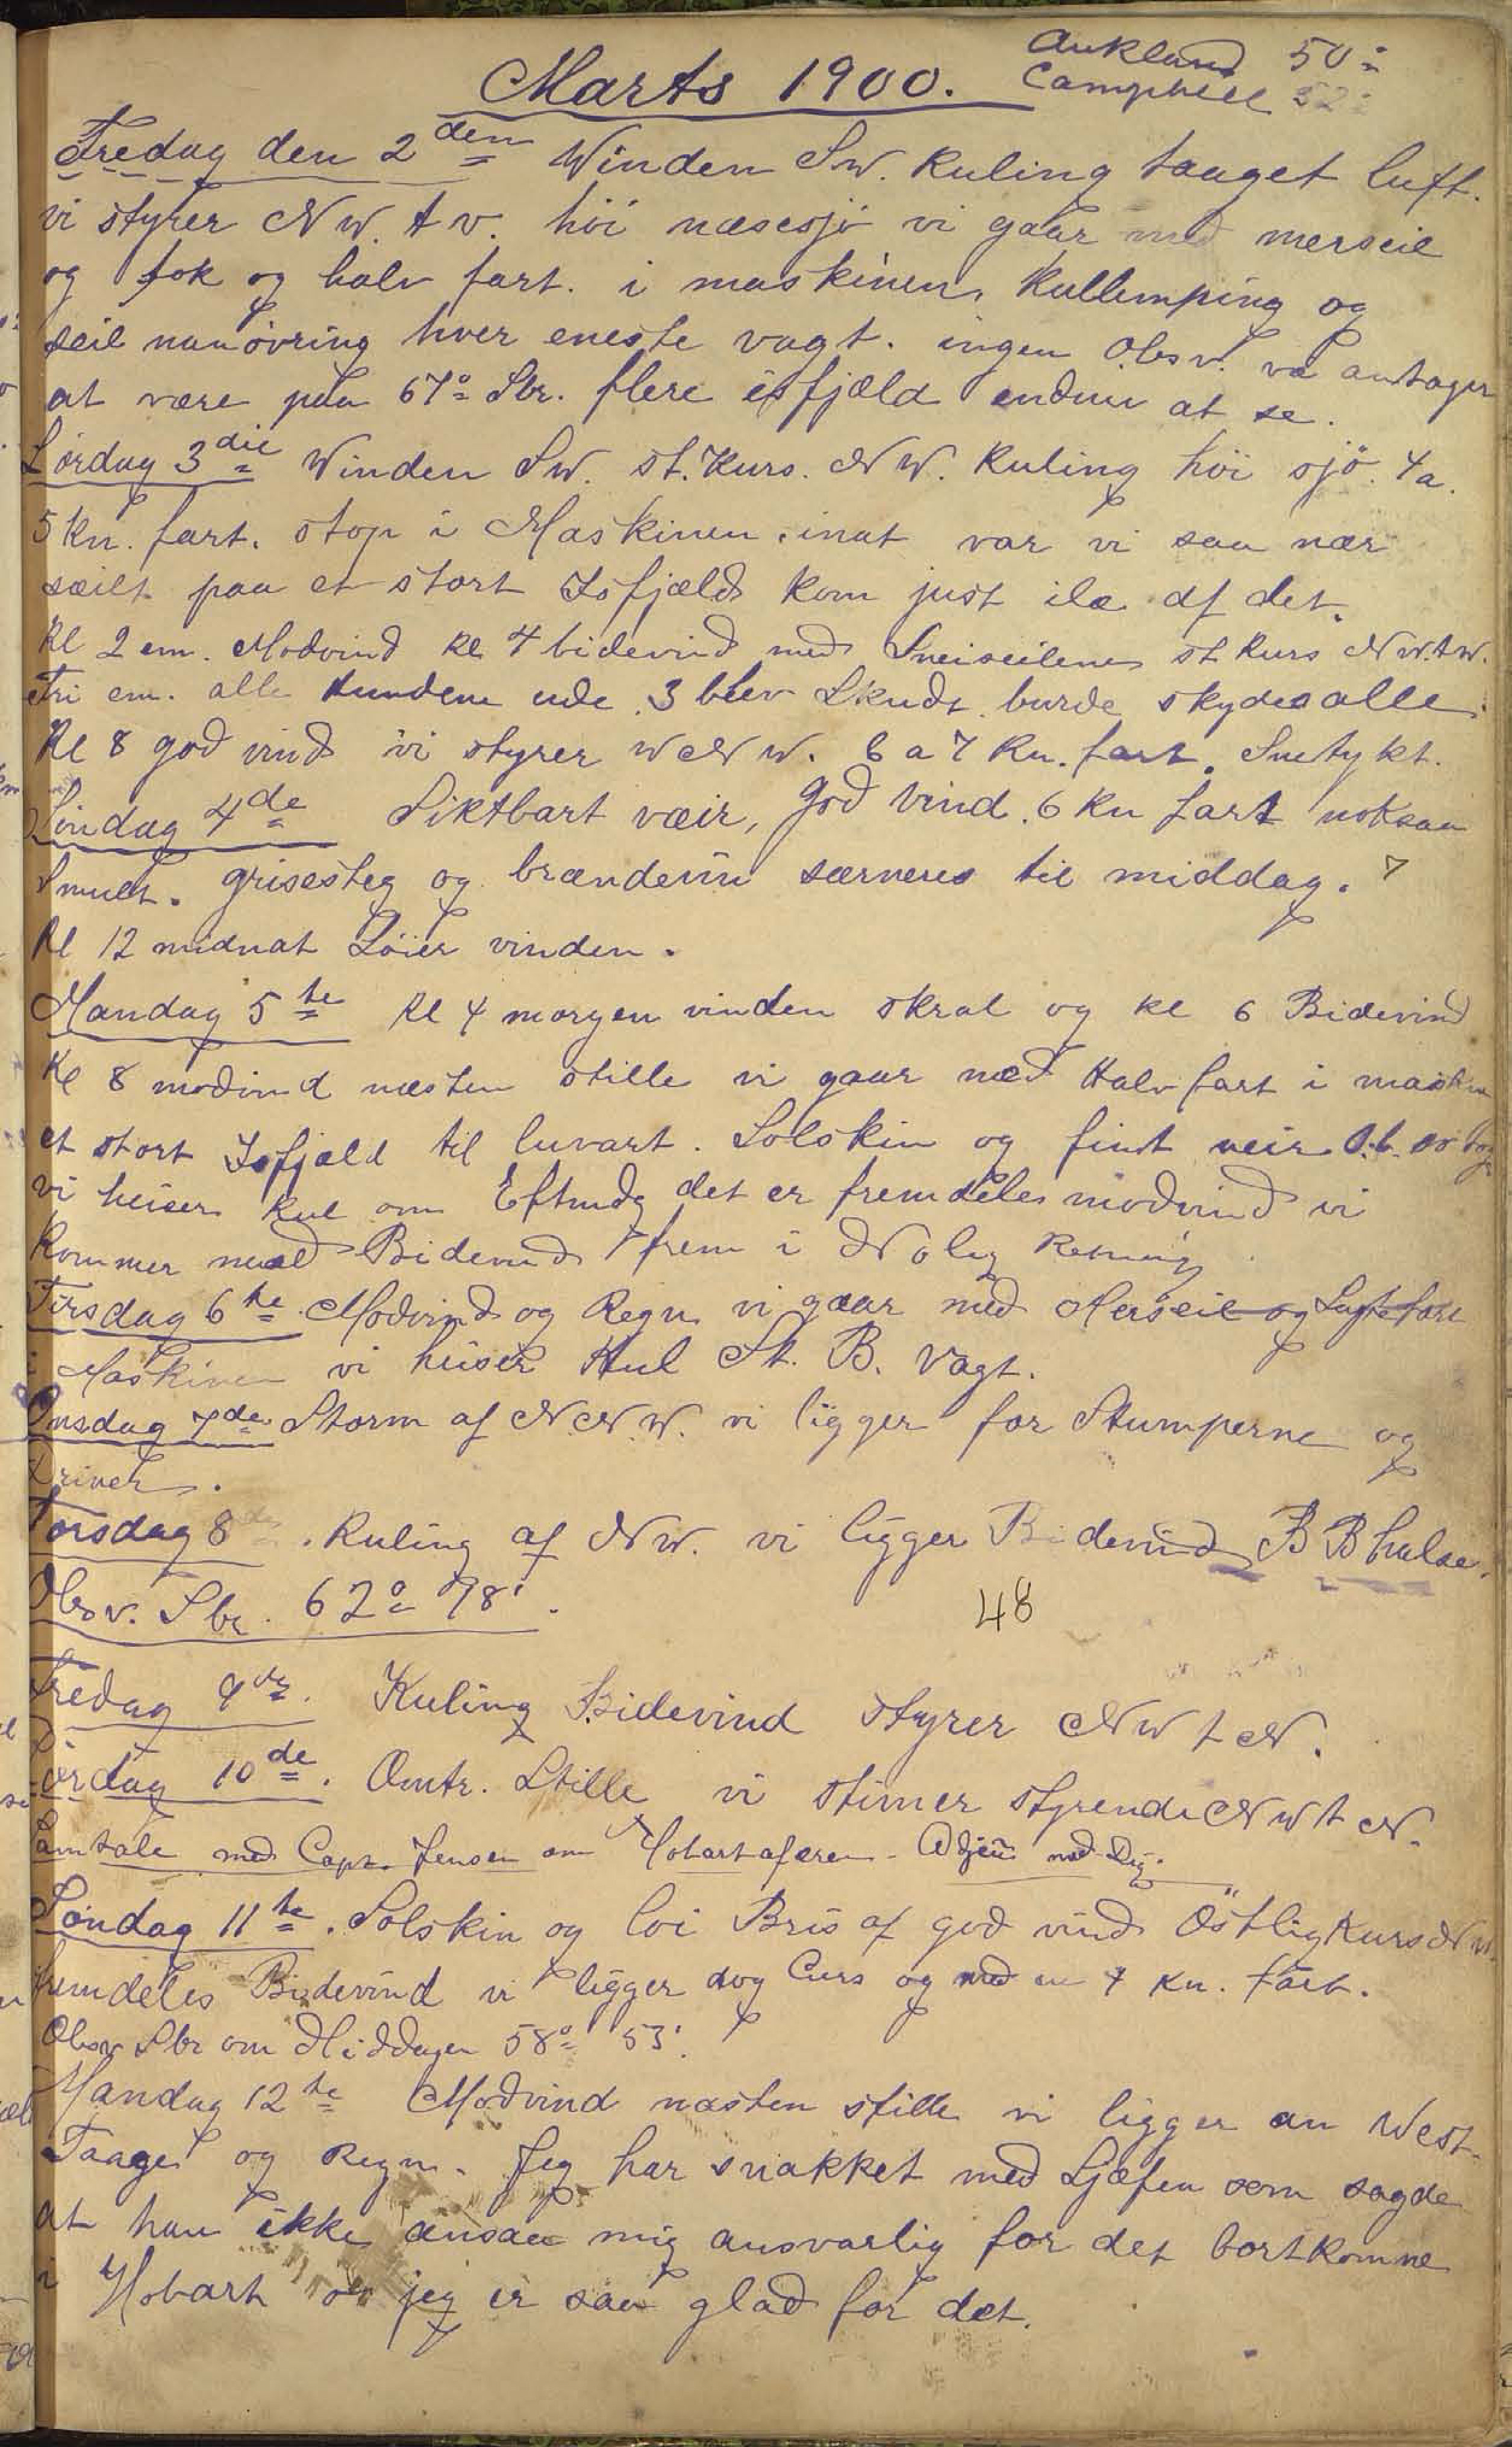 Aukland 50°
Campbell 52°
Marts 1900.
Fredag den 2den Winden SW. Kuling taaget luft.
vi styrer NW. t v. höi næsesjö vi gaar med merseil
og fok og halv fart. i maskinen, Kullemping og
seil manövring hver eneste vagt. ingen Obsv. vi antager
at være paa 67° Sbr. flere isfjæld endnu at se.
Lördag 3die Winden SW. st. Kurs. NW. Kuling höi sjö. 4 a.
5 Kn. fart. stop i Maskinen. inat var vi saa nær
seilt paa et stort Isfjæld kom just ilæ af det.
Kl 2 em. Modvind kl 4 bidevind med Sneiseilene st Kurs NW.tW.
Fri em. alle Hundene ude. 3 blev Skudt. burde skydes alle.
Kl 8 god vind vi styrer WNW. 6 a 7 Kn. fart. Snetykt.
Söndag 4de Siktbart væir, god vind. 6 Kn fart noksaa
Smult. grisesteg og brændevin særveres til middag.
Kl 12 midnat Löier vinden.
Mandag 5te Kl 4 morgen vinden skral og kl 6 Bidevind
Kl 8 modvind næsten stille vi gaar med Halv fart i maskin
et stort Isfjæld til luvart. Solskin og fint veir.
vi heiser kul om Eftmdg det er fremdeles modvind vi
kommer med Bidevind frem i Nolig Retning
Tirsdag 6te Modvind og Regn vi gaar med Merseil og Sagte fart
i Maskinen vi heiser Kul St. B. Vagt.
Onsdag 7de Storm af NNW. vi ligger for Stumperne og
driver.
Torsdag 8de. Kuling af NW. vi ligger Bidevind BB halse.
Obsv. Sbr. 62° 98'.
48
Fredag 9de. Kuling Bidevind styrer NW t N.
Lördag 10de. Omtr. Stille vi stimer styrende NW t N.
Samtale med Capt. Jensen om Hobartafæren. Adjeu med Dig.
Söndag 11te. Solskin og löi Bris af god vind Östlig Kurs NW.
fremdeles Bidevind vi ligger dog Curs og med en 4 Kn. fart.
Obsv Sbr om Middagen 58° 53'.
Mandag 12te Modvind næsten stille vi ligger an West.
Taage og Regn. Jeg har snakket med Sjæfen som sagde
at han ikke ansaa mig ansvarlig for det bortkomne
i Hobart og jeg er saa glad for det.